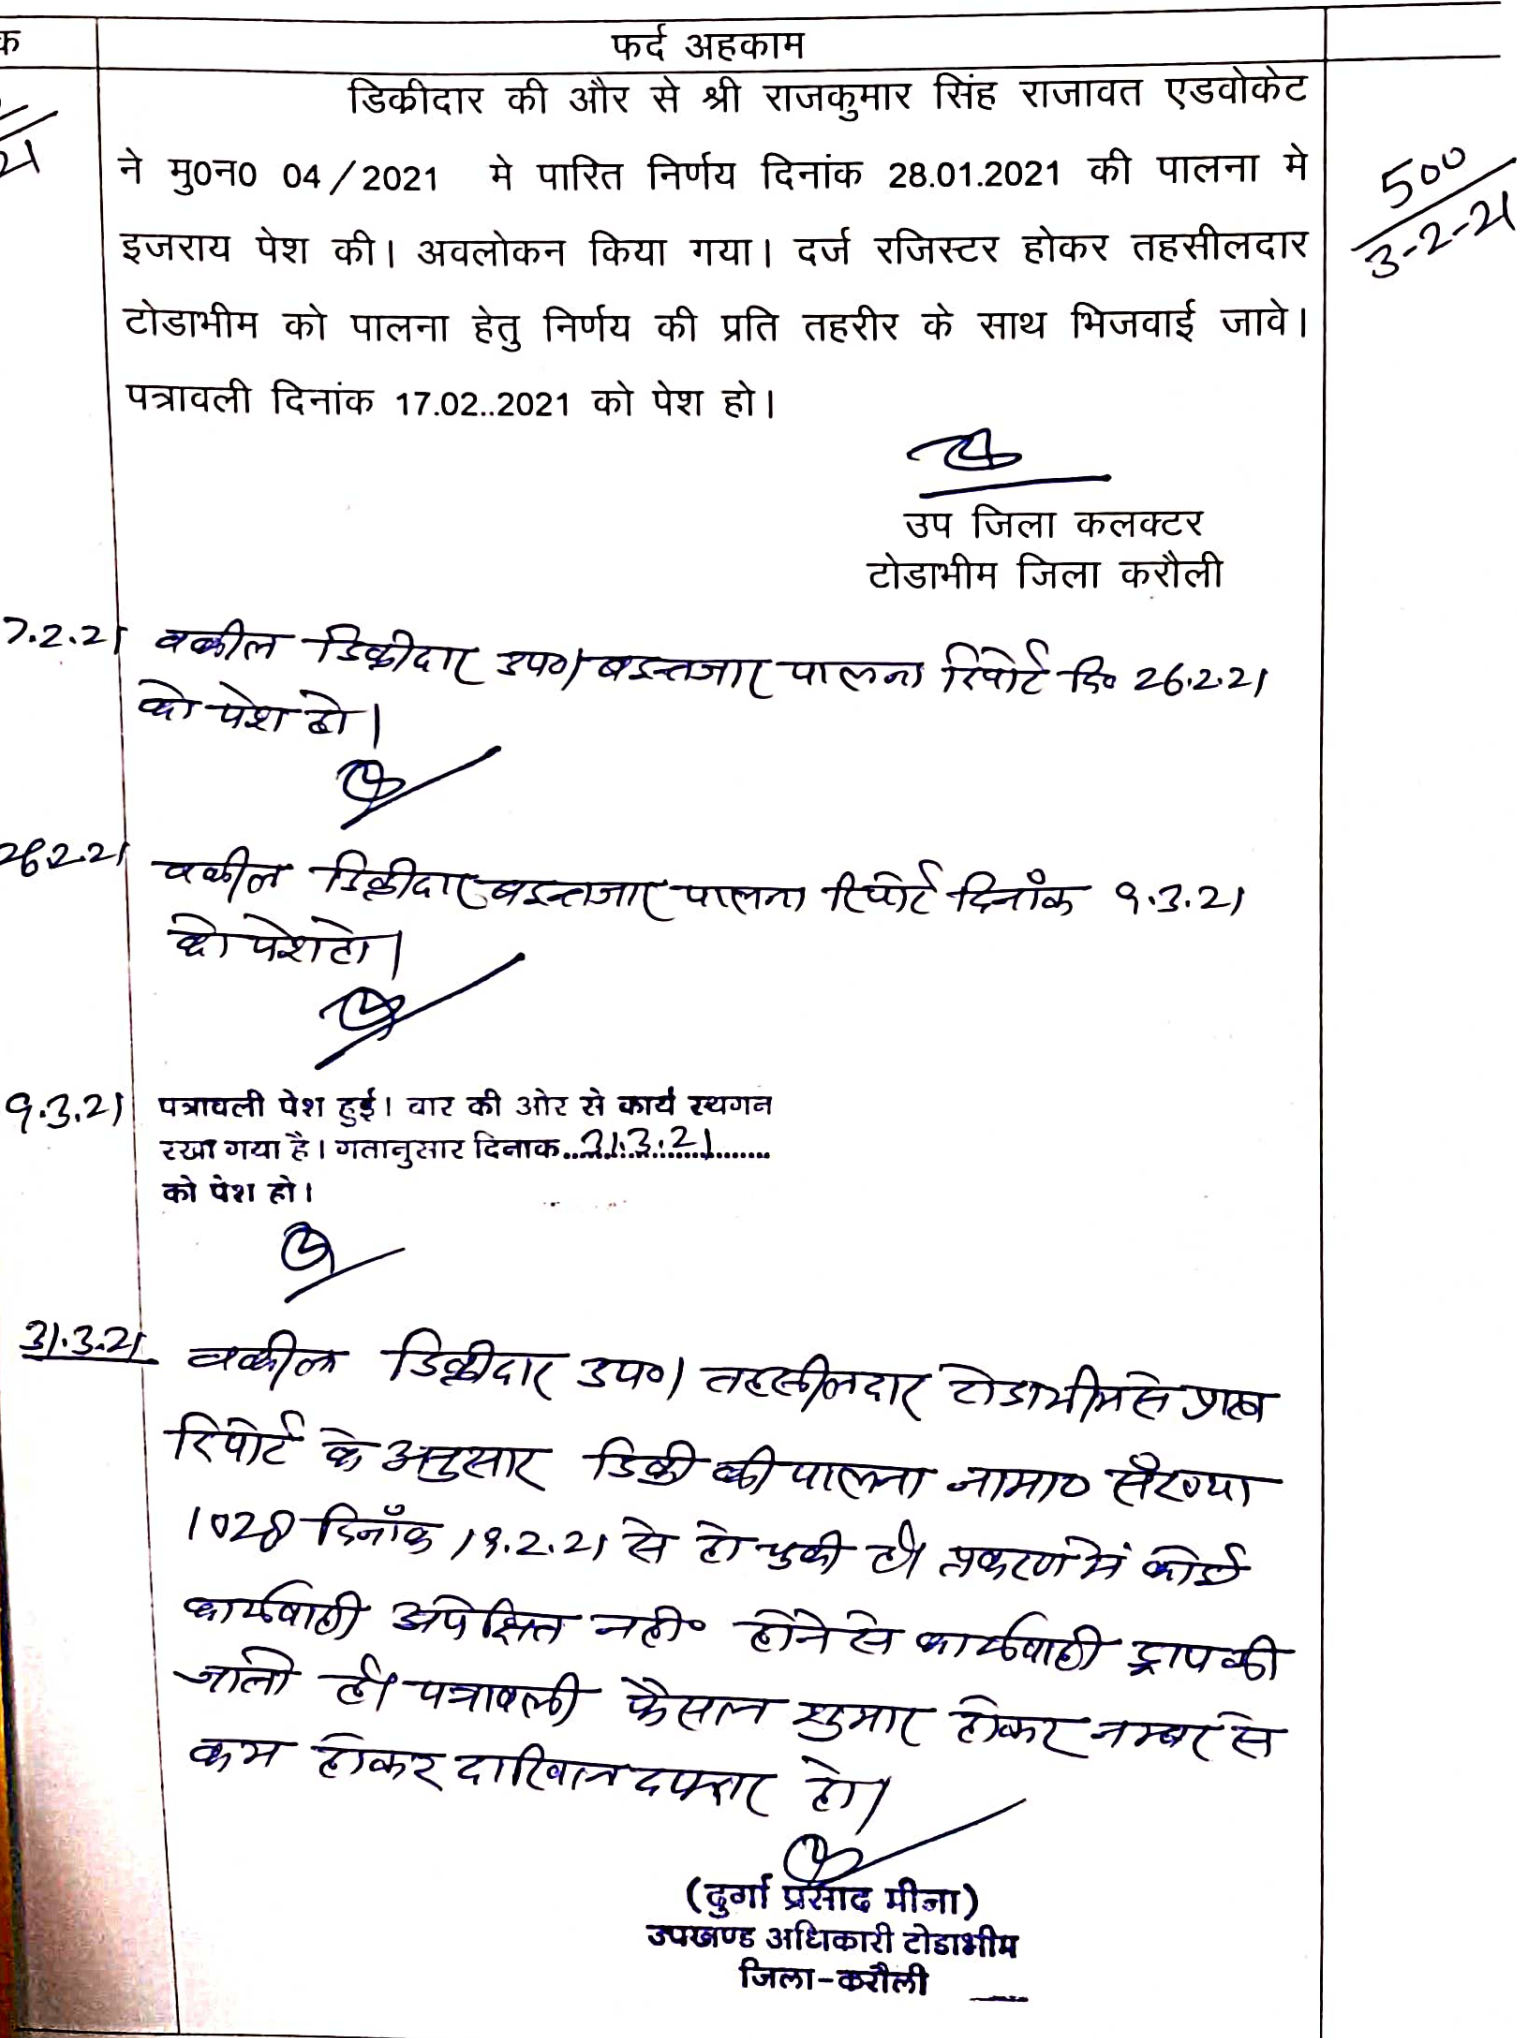 क
फर्द अहकाम
डिक्रीदार की और से श्री राजकुमार सिंह राजावत एडवोकेट
ने मु0न0 04/2021 मे पारित निर्णय दिनांक 28.01.2021 की पालना मे
इजराय पेश की। अवलोकन किया गया। दर्ज रजिस्टर होकर तहसीलदार
टोडाभीम को पालना हेतु निर्णय की प्रति तहरीर के साथ भिजवाई जावे।
पत्रावली दिनांक 17.02..2021 को पेश हो।
21
500
3-2-21
उप जिला कलक्टर
टोडाभीम जिला करौली
7.2.21 वकील डिक्रीदार उप०। बइन्तजार पालना रिपोर्ट दि० 26.2.21
को पेश हो।
26.2.21 वकील डिक्रीदार बइन्तजार पालना रिपोर्ट दिनाँक 9.3.21
को पेश हो।
9.3.21 पत्रावली पेश हुई। बार की ओर से कार्य स्थगन
रखा गया है। गतानुसार दिनाक..31.3.21........
को पेश हो।
31.3.21 वकील डिक्रीदार उप०। तहसीलदार टोडाभीम से प्राप्त
रिपोर्ट के अनुसार डिक्री की पालना नामा० संख्या
1028 दिनाँक 19.2.21 से हो चुकी है। प्रकरण में कोई
कार्यवाही अपेक्षित नहीं होने से कार्यवाही ड्राप की
जाती है। पत्रावली फैसल शुमार होकर नम्बर से
कम होकर दाखिल दफ्तर हो।
(दुर्गा प्रसाद मीना)
उपखण्ड अधिकारी टोडाभीम
जिला-करौली